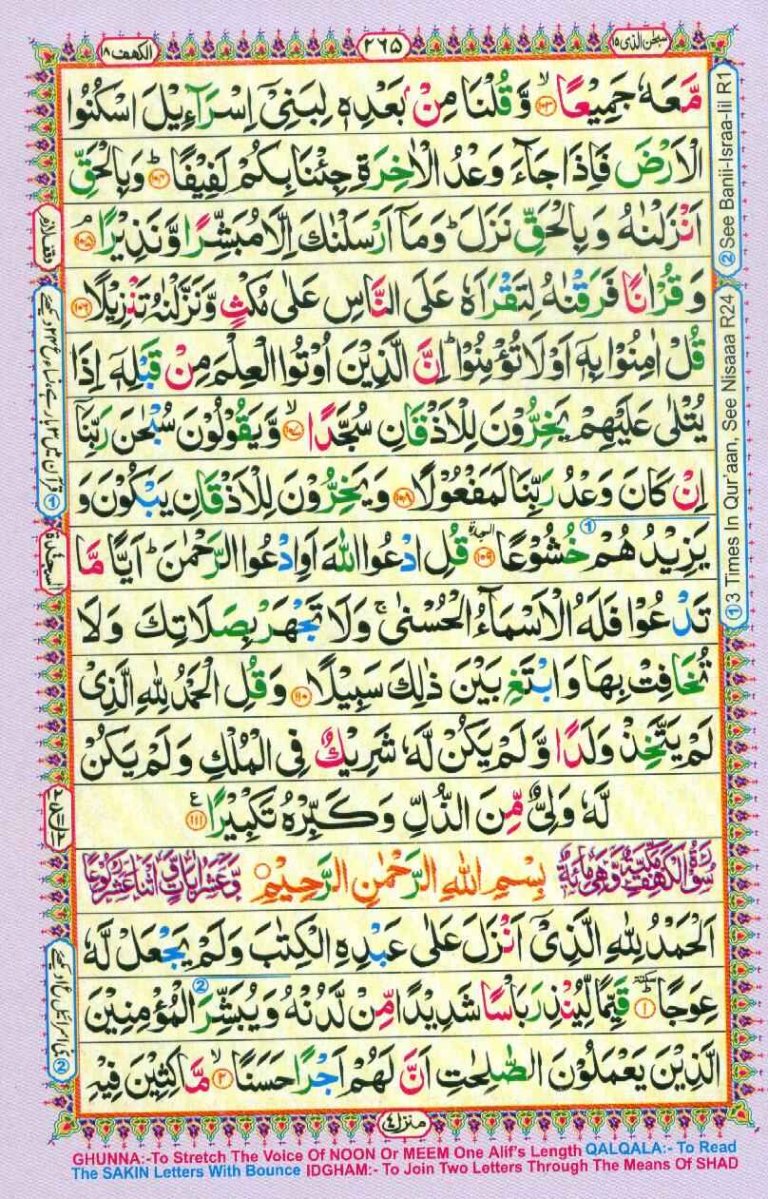 سبحٰن الذی ١٥
٢٦٥
الكهف ١٨
مَّعَهٗ جَمِيْعًا ۙ‏﴿۱۰۳﴾ وَّقُلْنَا مِنْۢ بَعْدِهٖ لِبَنِىْۤ اِسْرَآءِيْلَ اسْكُنُوا
الْاَرْضَ فَاِذَا جَآءَ وَعْدُ الْاٰخِرَةِ جِئْنَا بِكُمْ لَفِيْفًا ؕ‏﴿۱۰۴﴾ وَبِالْحَقِّ
اَنْزَلْنٰهُ وَبِالْحَقِّ نَزَلَ ؕ وَمَاۤ اَرْسَلْنٰكَ اِلَّا مُبَشِّرًا وَّنَذِيْرًا ۘ‏﴿۱۰۵﴾
وَقُرْاٰنًا فَرَقْنٰهُ لِتَقْرَاَهٗ عَلَى النَّاسِ عَلٰى مُكْثٍ وَّنَزَّلْنٰهُ تَنْزِيْلًا‏﴿۱۰۶﴾
قُلْ اٰمِنُوْا بِهٖۤ اَوْ لَا تُؤْمِنُوْا ؕ اِنَّ الَّذِيْنَ اُوْتُوا الْعِلْمَ مِنْ قَبْلِهٖۤ اِذَا
يُتْلٰى عَلَيْهِمْ يَخِرُّوْنَ لِلْاَذْقَانِ سُجَّدًا ۙ‏﴿۱۰۷﴾ وَّيَقُوْلُوْنَ سُبْحٰنَ رَبِّنَاۤ
اِنْ كَانَ وَعْدُ رَبِّنَا لَمَفْعُوْلًا‏﴿۱۰۸﴾ وَيَخِرُّوْنَ لِلْاَذْقَانِ يَبْكُوْنَ وَ
يَزِيْدُهُمْ خُشُوْعًا ۩‏﴿۱۰۹﴾ قُلِ ادْعُوا اللّٰهَ اَوِ ادْعُوا الرَّحْمٰنَ ؕ اَيًّا مَّا
تَدْعُوْا فَلَهُ الْاَسْمَآءُ الْحُسْنٰى ۚ وَلَا تَجْهَرْ بِصَلَاتِكَ وَلَا
تُخَافِتْ بِهَا وَابْتَغِ بَيْنَ ذٰلِكَ سَبِيْلًا‏﴿۱۱۰﴾ وَقُلِ الْحَمْدُ لِلّٰهِ الَّذِىْ
لَمْ يَتَّخِذْ وَلَدًا وَّلَمْ يَكُنْ لَّهٗ شَرِيْكٌ فِى الْمُلْكِ وَلَمْ يَكُنْ
لَّهٗ وَلِىٌّ مِّنَ الذُّلِّ وَكَبِّرْهُ تَكْبِيْرًا‏﴿۱۱۱﴾
سُوْرَةُ الْكَهْفِ مَكِّيَّةٌ وَّهِىَ مِائَةٌ بِسْمِ اللّٰهِ الرَّحْمٰنِ الرَّحِيْمِ وَّعَشْرُ اٰيَاتٍ وَّاثْنَا عَشَرَ رُكُوْعًا
اَلْحَمْدُ لِلّٰهِ الَّذِىْۤ اَنْزَلَ عَلٰى عَبْدِهِ الْكِتٰبَ وَلَمْ يَجْعَلْ لَّهٗ
عِوَجًا ؕ‏﴿۱﴾ قَيِّمًا لِّيُنْذِرَ بَاْسًا شَدِيْدًا مِّنْ لَّدُنْهُ وَيُبَشِّرَ الْمُؤْمِنِيْنَ
الَّذِيْنَ يَعْمَلُوْنَ الصّٰلِحٰتِ اَنَّ لَهُمْ اَجْرًا حَسَنًا ۙ‏﴿۲﴾ مَّاكِثِيْنَ فِيْهِ
منزل ٤
② See Banii-Israa-Iil R1
① 3 Times In Qur'aan, See Nisaaa R24
GHUNNA:-To Stretch The Voice Of NOON Or MEEM One Alif's Length QALQALA:- To Read
The SAKIN Letters With Bounce IDGHAM:- To Join Two Letters Through The Means Of SHAD